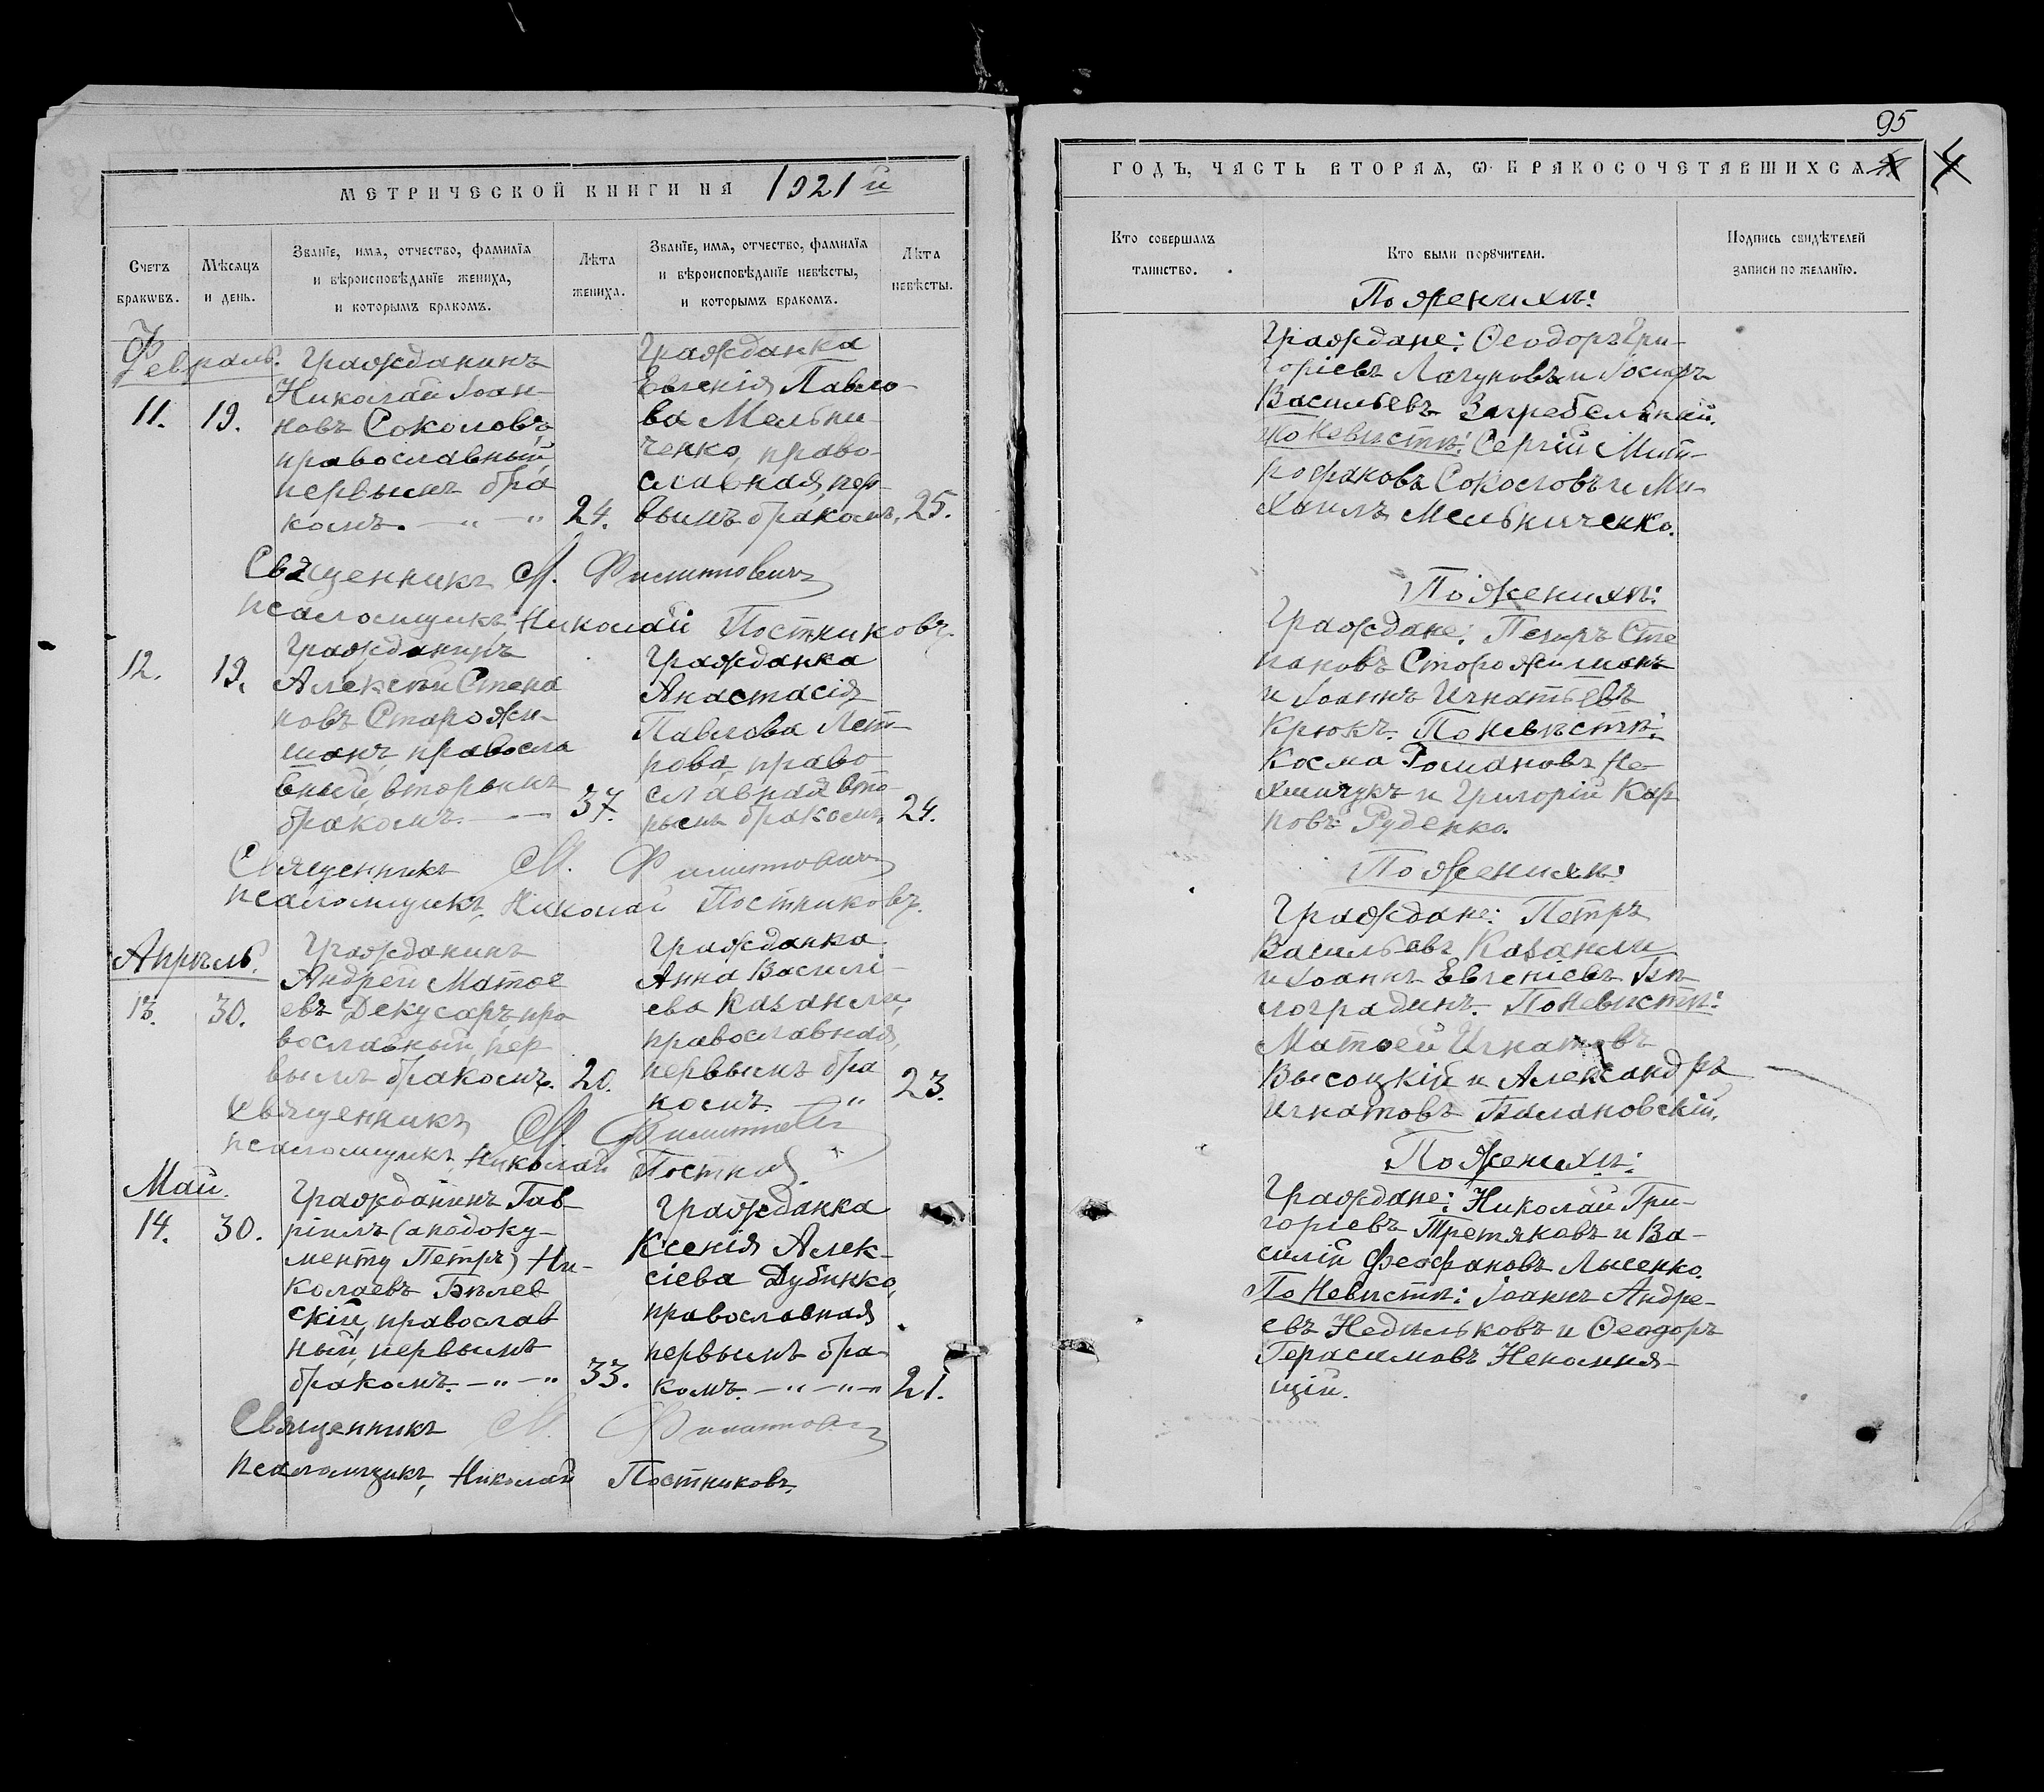 МЕТРИЧЕСКОЙ КНИГИ НА 1921 й
Счетъ браковъ.
Мѣсяцъ и день.
Званїе, имя, отчество, фамилїя
и вѣроисповѣданїе жениха,
и которымъ бракомъ.
Лѣта
жениха.
Званїе, имя, отчество, фамилїя
и вѣроисповѣданїе невѣсты,
и которымъ бракомъ.
Лѣта
невѣсты.
Февраль.
11. 19.
Гражданинъ
Николай Іоан-
новъ Соколовъ,
православный,
первымъ бра
комъ. — „ — „
24.
Гражданка
Евгенія Павло-
ва Мельни-
ченко, право-
славная, пер-
вымъ бракомъ.
25.
Священникъ М. Филипповичъ
псаломщикъ, Николай Постниковъ.
12. 19.
Гражданинъ
Алексѣй Степа
новъ Старожи-
манъ, правосла
вный, вторымъ
бракомъ. — —
37.
Гражданка
Анастасія
Павлова Пет-
рова, право
славная, вто-
рымъ бракомъ.
24.
Священникъ М. Филипповичъ
псаломщикъ, Николай Постниковъ.
Апрѣль.
13. 30.
Гражданинъ
Андрей Матѳе
евъ Декусаръ, пра
вославный, пер
вымъ бракомъ.
20.
Гражданка
Анна Василі-
ева Казанли,
православная,
первымъ бра
комъ. — „
23.
Священникъ М. Филиппович
псаломщикъ, Николай Постник
Май.
14. 30.
Гражданинъ Гав-
ріилъ (а по доку-
менту Петръ) Ни-
колаевъ Бѣлев
скій, православ
ный, первымъ
бракомъ. — „ — „
33.
Гражданка
Ксенія Алек-
сіева Дубинко,
православная
первымъ бра-
комъ. — „ — „ — „
21.
Священникъ М. Филиппович
псаломщикъ, Николай Постниковъ.
95
ГОДЪ, ЧАСТЬ ВТОРАЯ, Ѡ БРАКОСОЧЕТАВШИХСЯ
4
Кто совершалъ
таинство.
Кто были поручители.
Подпись свидѣтелей
записи по желанїю.
По женихѣ:
Граждане: Ѳеодоръ Гри-
горіевъ Лагуновъ и
Васильевъ Загребельный.
По невѣстѣ: Сергій Мит-
рофановъ Соколовъ и Ми-
хаилъ Мельниченко.
По женихѣ:
Граждане: Петръ Сте
пановъ Сторожиманъ
и Іоаннъ Игнатьевъ
Крюкъ. По невѣстѣ:
Косма Романовъ Не-
химчукъ и Григорій Кар
повъ Руденко.
По женихѣ:
Граждане: Петръ
Васильевъ Казанли
и Іоаннъ Евгеніевъ Бѣ-
лоградинъ. По невѣстѣ:
Матѳей Игнатовъ
Высоцкій и Александръ
Игнатовъ Балановскій.
По женихѣ:
Граждане: Николай Гри-
горіевъ Третяковъ и Ва-
силій Феофановъ Лысенко.
По невѣстѣ: Іоаннъ Андре-
евъ Недѣльковъ и Ѳеодоръ
Герасимовъ Непомня-
щій.